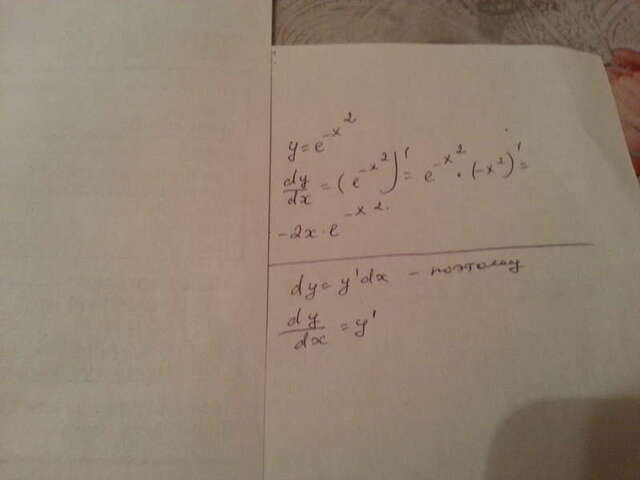 y = e^{-x^2}
dy/dx = (e^{-x^2})' = e^{-x^2} · (-x^2)' =
-2x · e^{-x^2}.
dy = y'dx – поэтому
dy/dx = y'